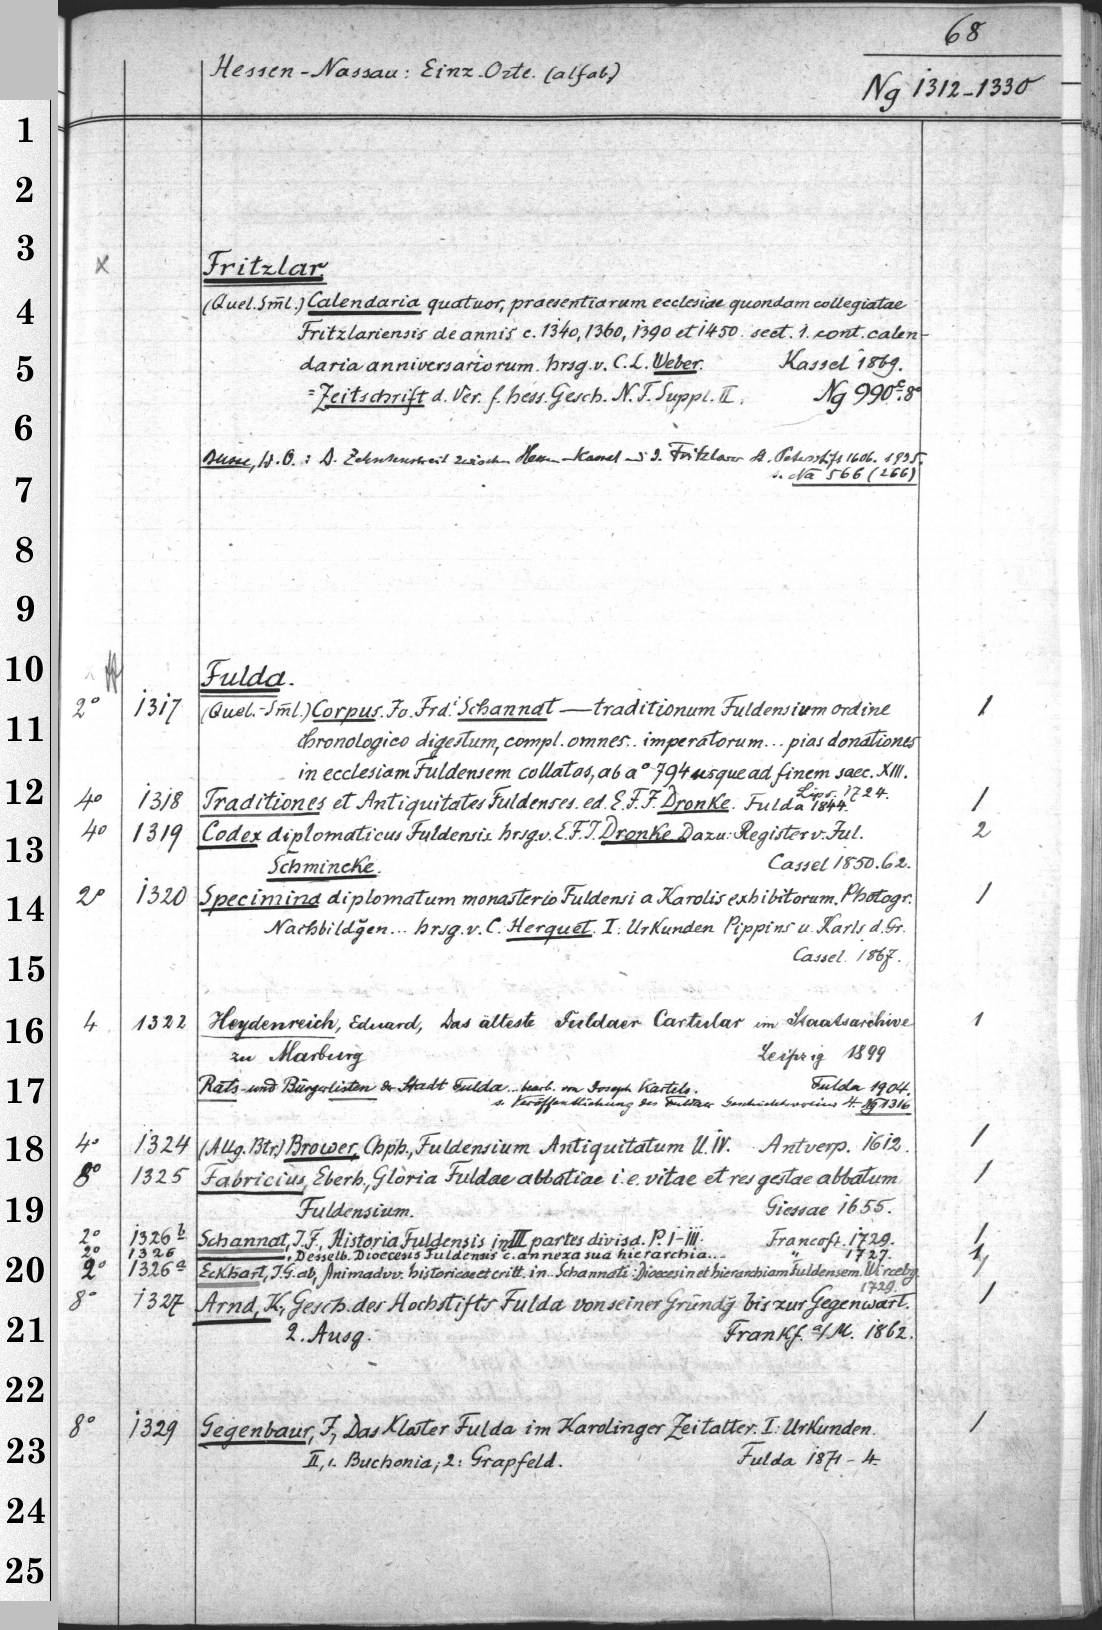 68
Hessen-Nassau: Einz. Orte. (alfab.)
Ng 1312-1330
1
2
3
x Fritzlar
4
(Quel. Sm̄l.) Calendaria quatuor, praesentiarum ecclesiae quondam collegiatae
Fritzlariensis de annis c. 1340, 1360, 1390 et 1450. sect. 1. cont. calen-
5
daria anniversariorum. hrsg. v. C. L. Weber. Kassel 1869.
= Zeitschrift d. Ver. f. hess. Gesch. N. F. Suppl. II. Ng 990c.8°
6
W. O.: D. zwischen Hessen-Kassel 1606. 1935.
7
s. Na 566 (266)
8
9
10
Fulda.
2° 1317 (Quel.-Sm̄l.) Corpus. Jo. Frd.i Schannat — traditionum Fuldensium ordine 1
11
chronologico digestum, compl. omnes.. imperatorum... pias donationes
in ecclesiam Fuldensem collatas, ab a° 794 usque ad finem saec. XIII.
Lips. 1724.
12
4° 1318 Traditiones et Antiquitates Fuldenses. ed. E. F. J. Dronke. Fulda 1844. 1
4° 1319 Codex diplomaticus Fuldensis hrsg. v. E. F. J. Dronke Dazu: Register v. Jul. 2
13
Schmincke. Cassel 1850. 62.
14
2° 1320 Specimina diplomatum monasterio Fuldensi a Karolis exhibitorum. Photogr. 1
Nachbildg̃en... hrsg. v. C. Herquet. I: Urkunden Pippins u. Karls d. Gr.
Cassel. 1867.
15
16
4 1322 Heydenreich, Eduard, Das älteste Fuldaer Cartular im Staatsarchive 1
zu Marburg Leipzig 1899
17
Rats- und Bürgerlisten der Stadt Fulda.. bearb. von Joseph Kartels. Fulda 1904.
s. Veröffentlichung des Fuldaer Geschichtsvereins 4. Ng 1316
18
4° 1324 (Allg. Btr.) Brower, Chph., Fuldensium Antiquitatum ll. IV. Antverp. 1612. 1
8° 1325 Fabricius, Eberh., Gloria Fuldae abbatiae i. e. vitae et res gestae abbatum 1
19
Fuldensium. Giessae 1655.
2° 1326b Schannat, J. F., Historia Fuldensis in III partes divisa. P. I-III. Francoft. 1729. 1
2° 1326 , Desselb. Dioecesis Fuldensis c. annexa sua hierarchia... " 1727. 1
20
2° 1326a Eckhart, J. G. ab, Animadvv. historicae et critt. in Schannati: Dioecesin et hierarchiam Fuldensem. Wirzebg. 1
1729.
8° 1327 Arnd, K., Gesch. des Hochstifts Fulda von seiner Gründg̃ bis zur Gegenwart. 1
21
2. Ausg. Frankf. a/M. 1862.
22
8° 1329 Gegenbaur, J., Das Kloster Fulda im Karolinger Zeitalter. I: Urkunden. 1
23
II, 1. Buchonia; 2: Grapfeld. Fulda 1871-4.
24
25